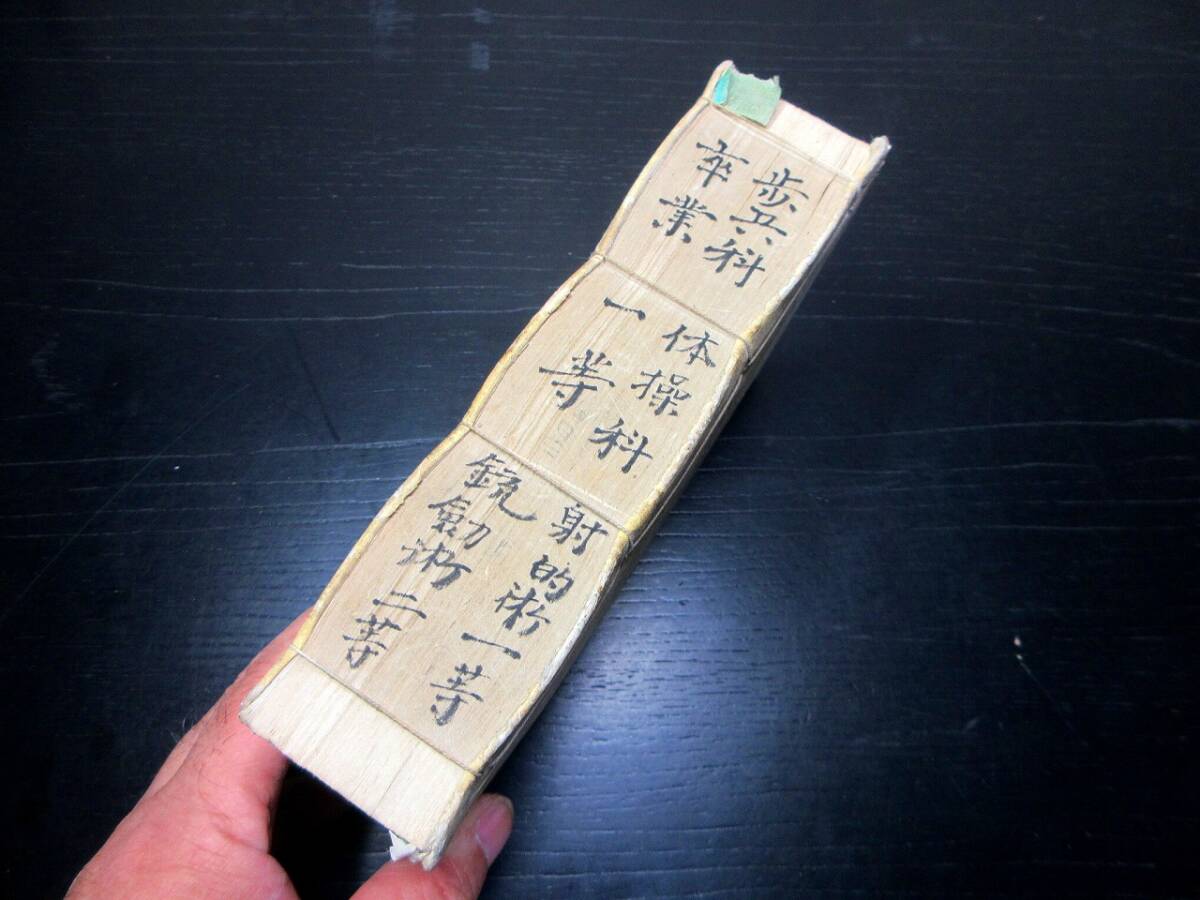 歩兵科
卒業
体操科
一等
射的術一等
銃劍術二等